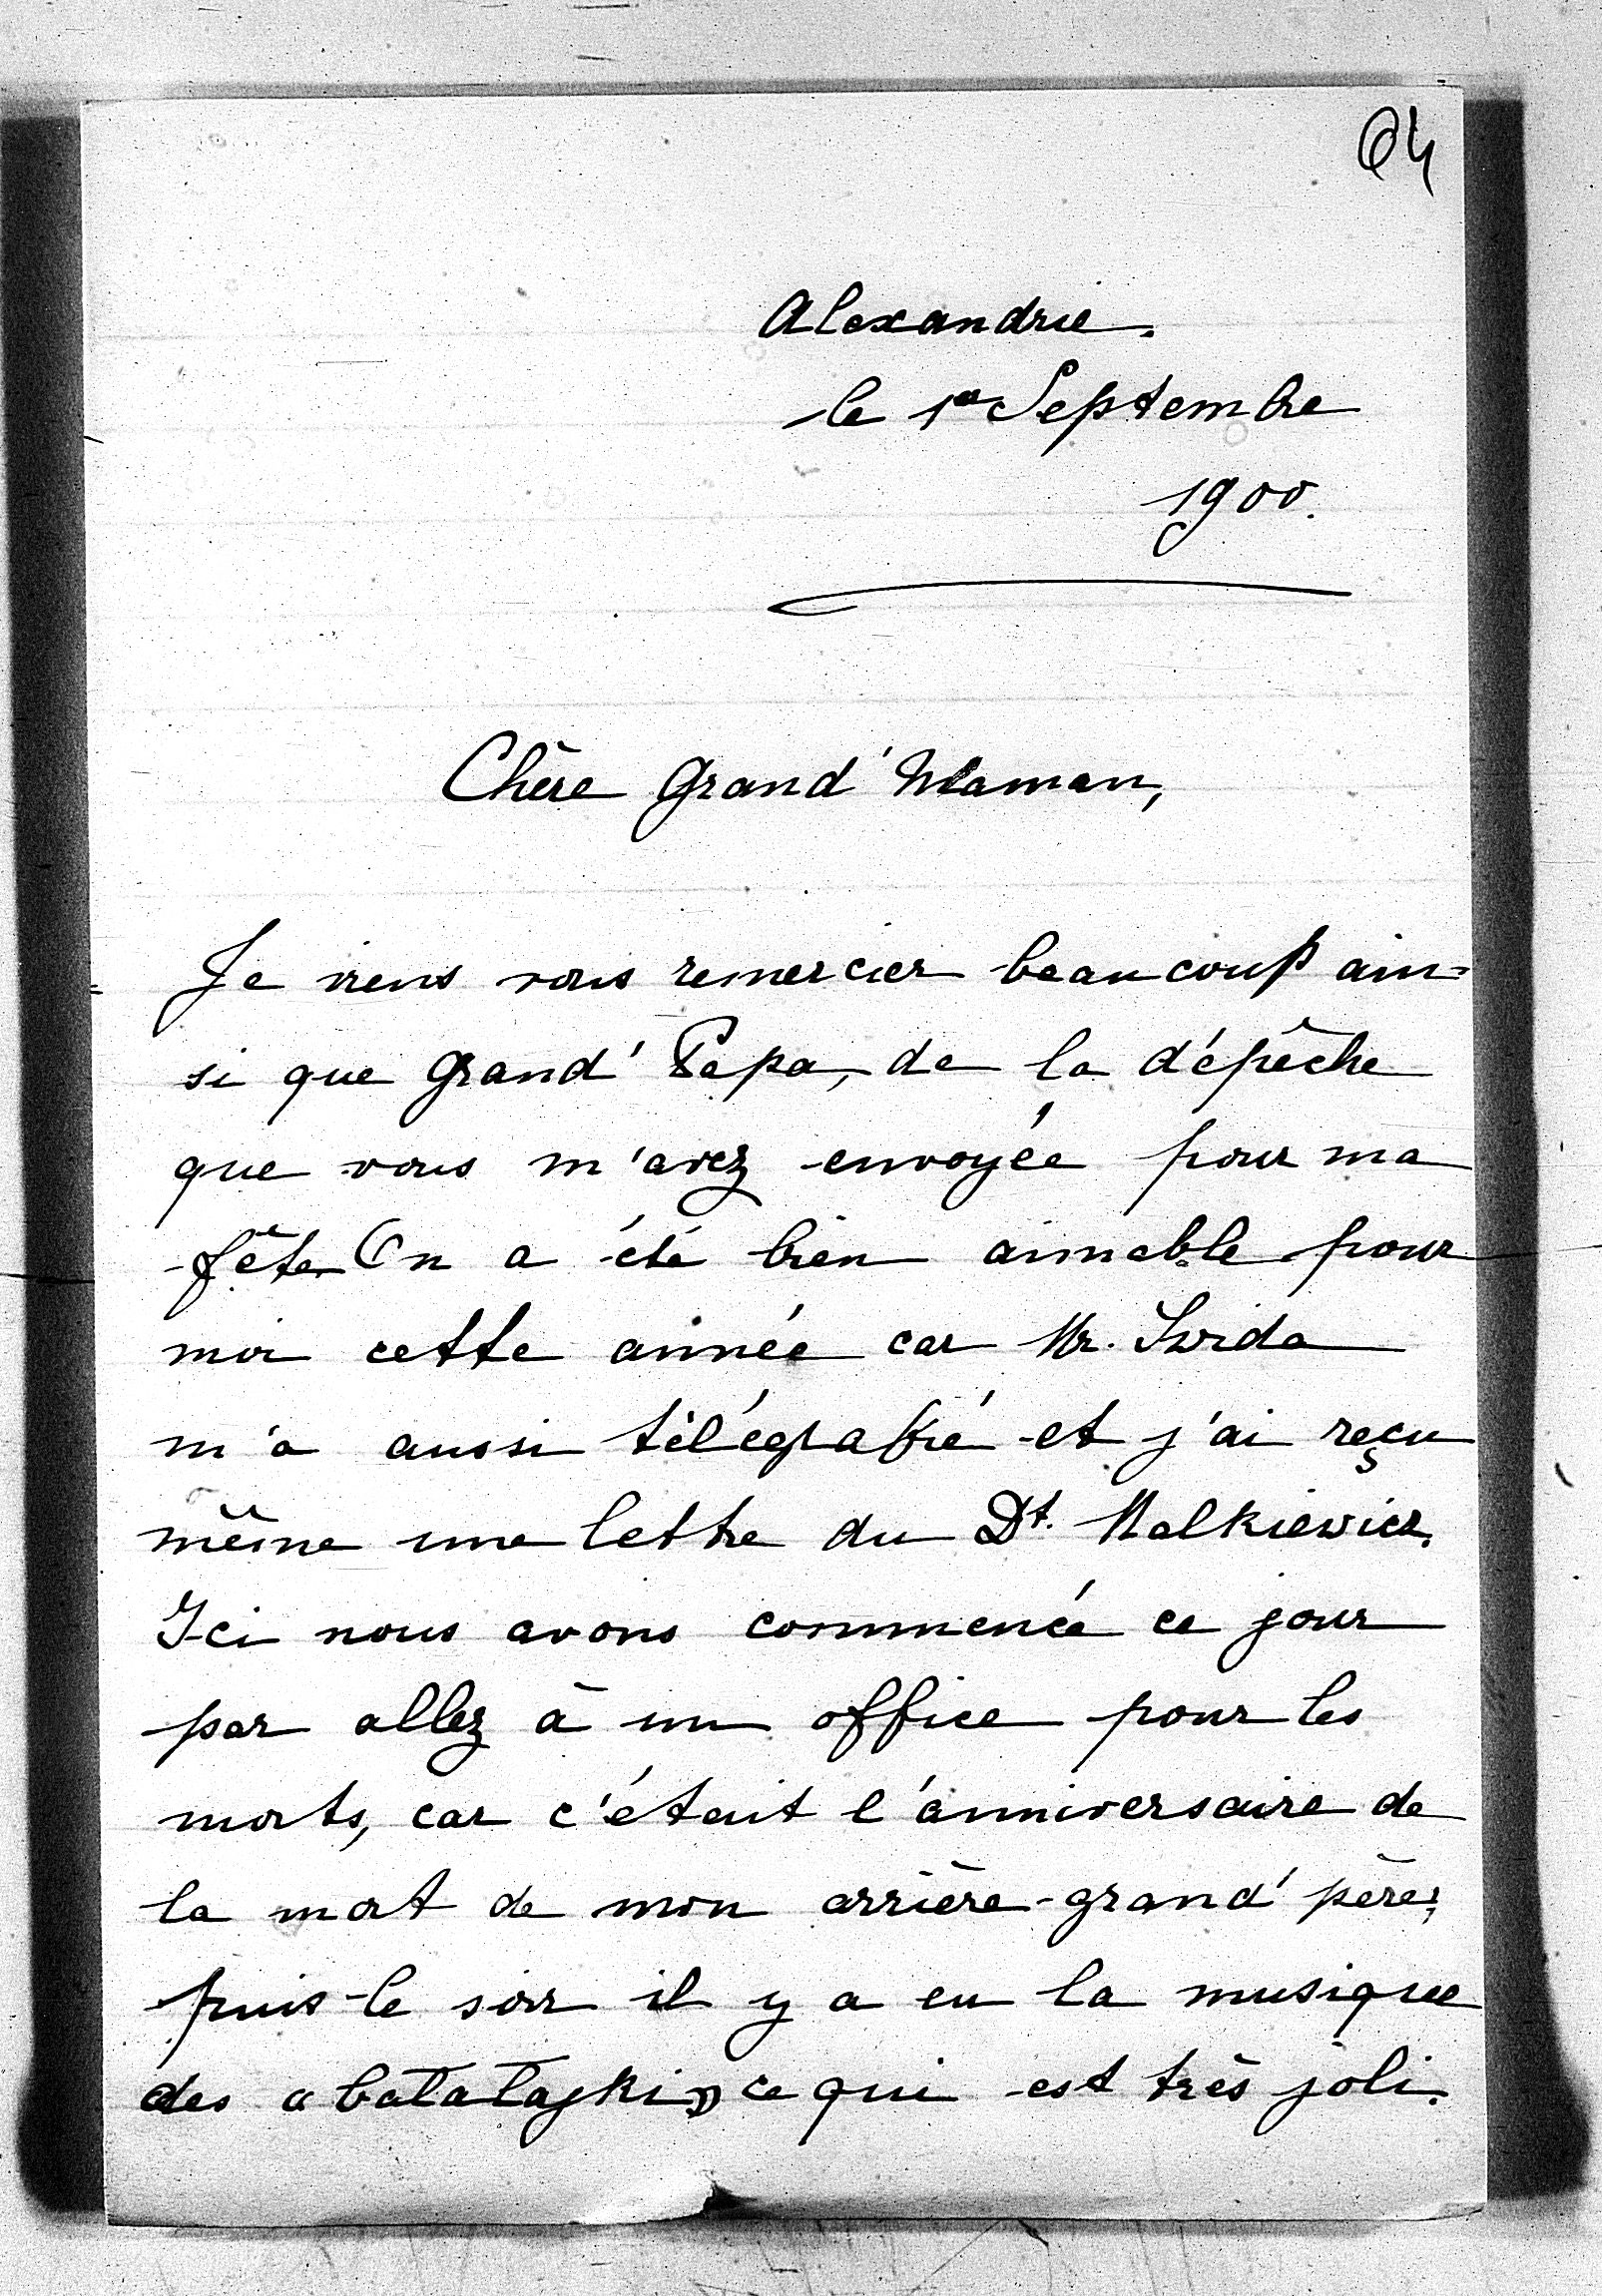 64
Alexandrie.
le 1er Septembre
1900.
Chère Grand'Maman,
Je viens vous remercier beaucoup ain-
si que Grand'Papa, de la dépêche
que vous m'avez envoyée pour ma
fête. On a été bien aimable pour
moi cette année car Mr. Swida
m'a aussi télégrafié et j'ai reçu
même une lettre du Dt. Malkiewicz.
Ici nous avons commencé ce jour
par allez à un office pour les
morts, car c'était l'anniversaire de
la mort de mon arrière-grand'père;
puis le soir il y a eu la musique
des «bałałajki» ce qui est très joli.